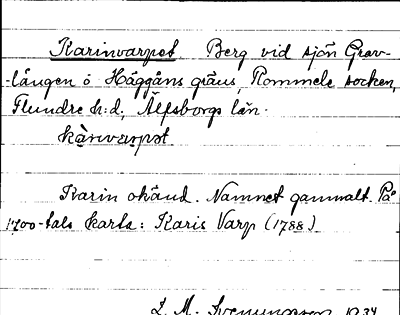 Karinvarpet Berg vid sjön Grav-
-lången ö Häggåns gräns, Rommele socken,
Flundre h:d, Älfsborgs län.
kàrivarpet
Karin okänd. Namnet gammalt. På
1700-tals karta: Karis Varp (1788)
L. M. Svenungsson 1934